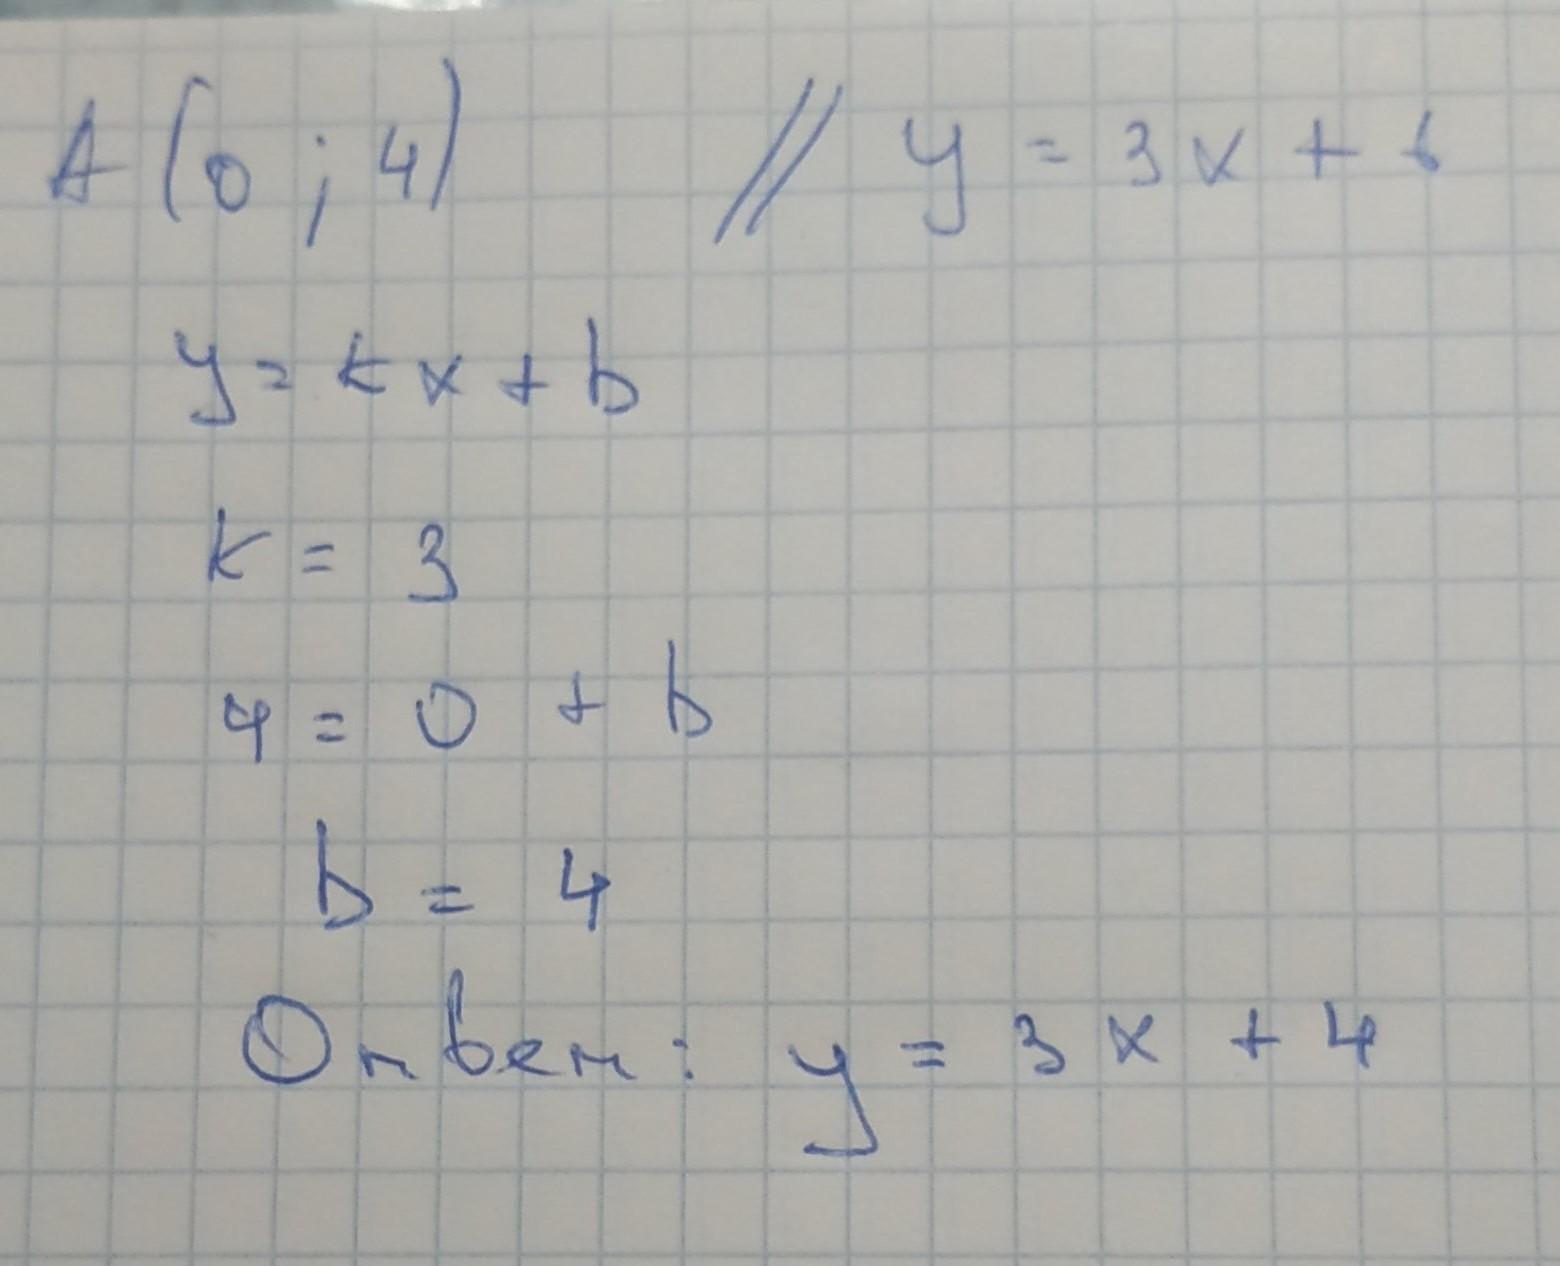 A(0;4) // y = 3x + 6
y = kx + b
k = 3
4 = 0 + b
b = 4
Ответ: y = 3x + 4